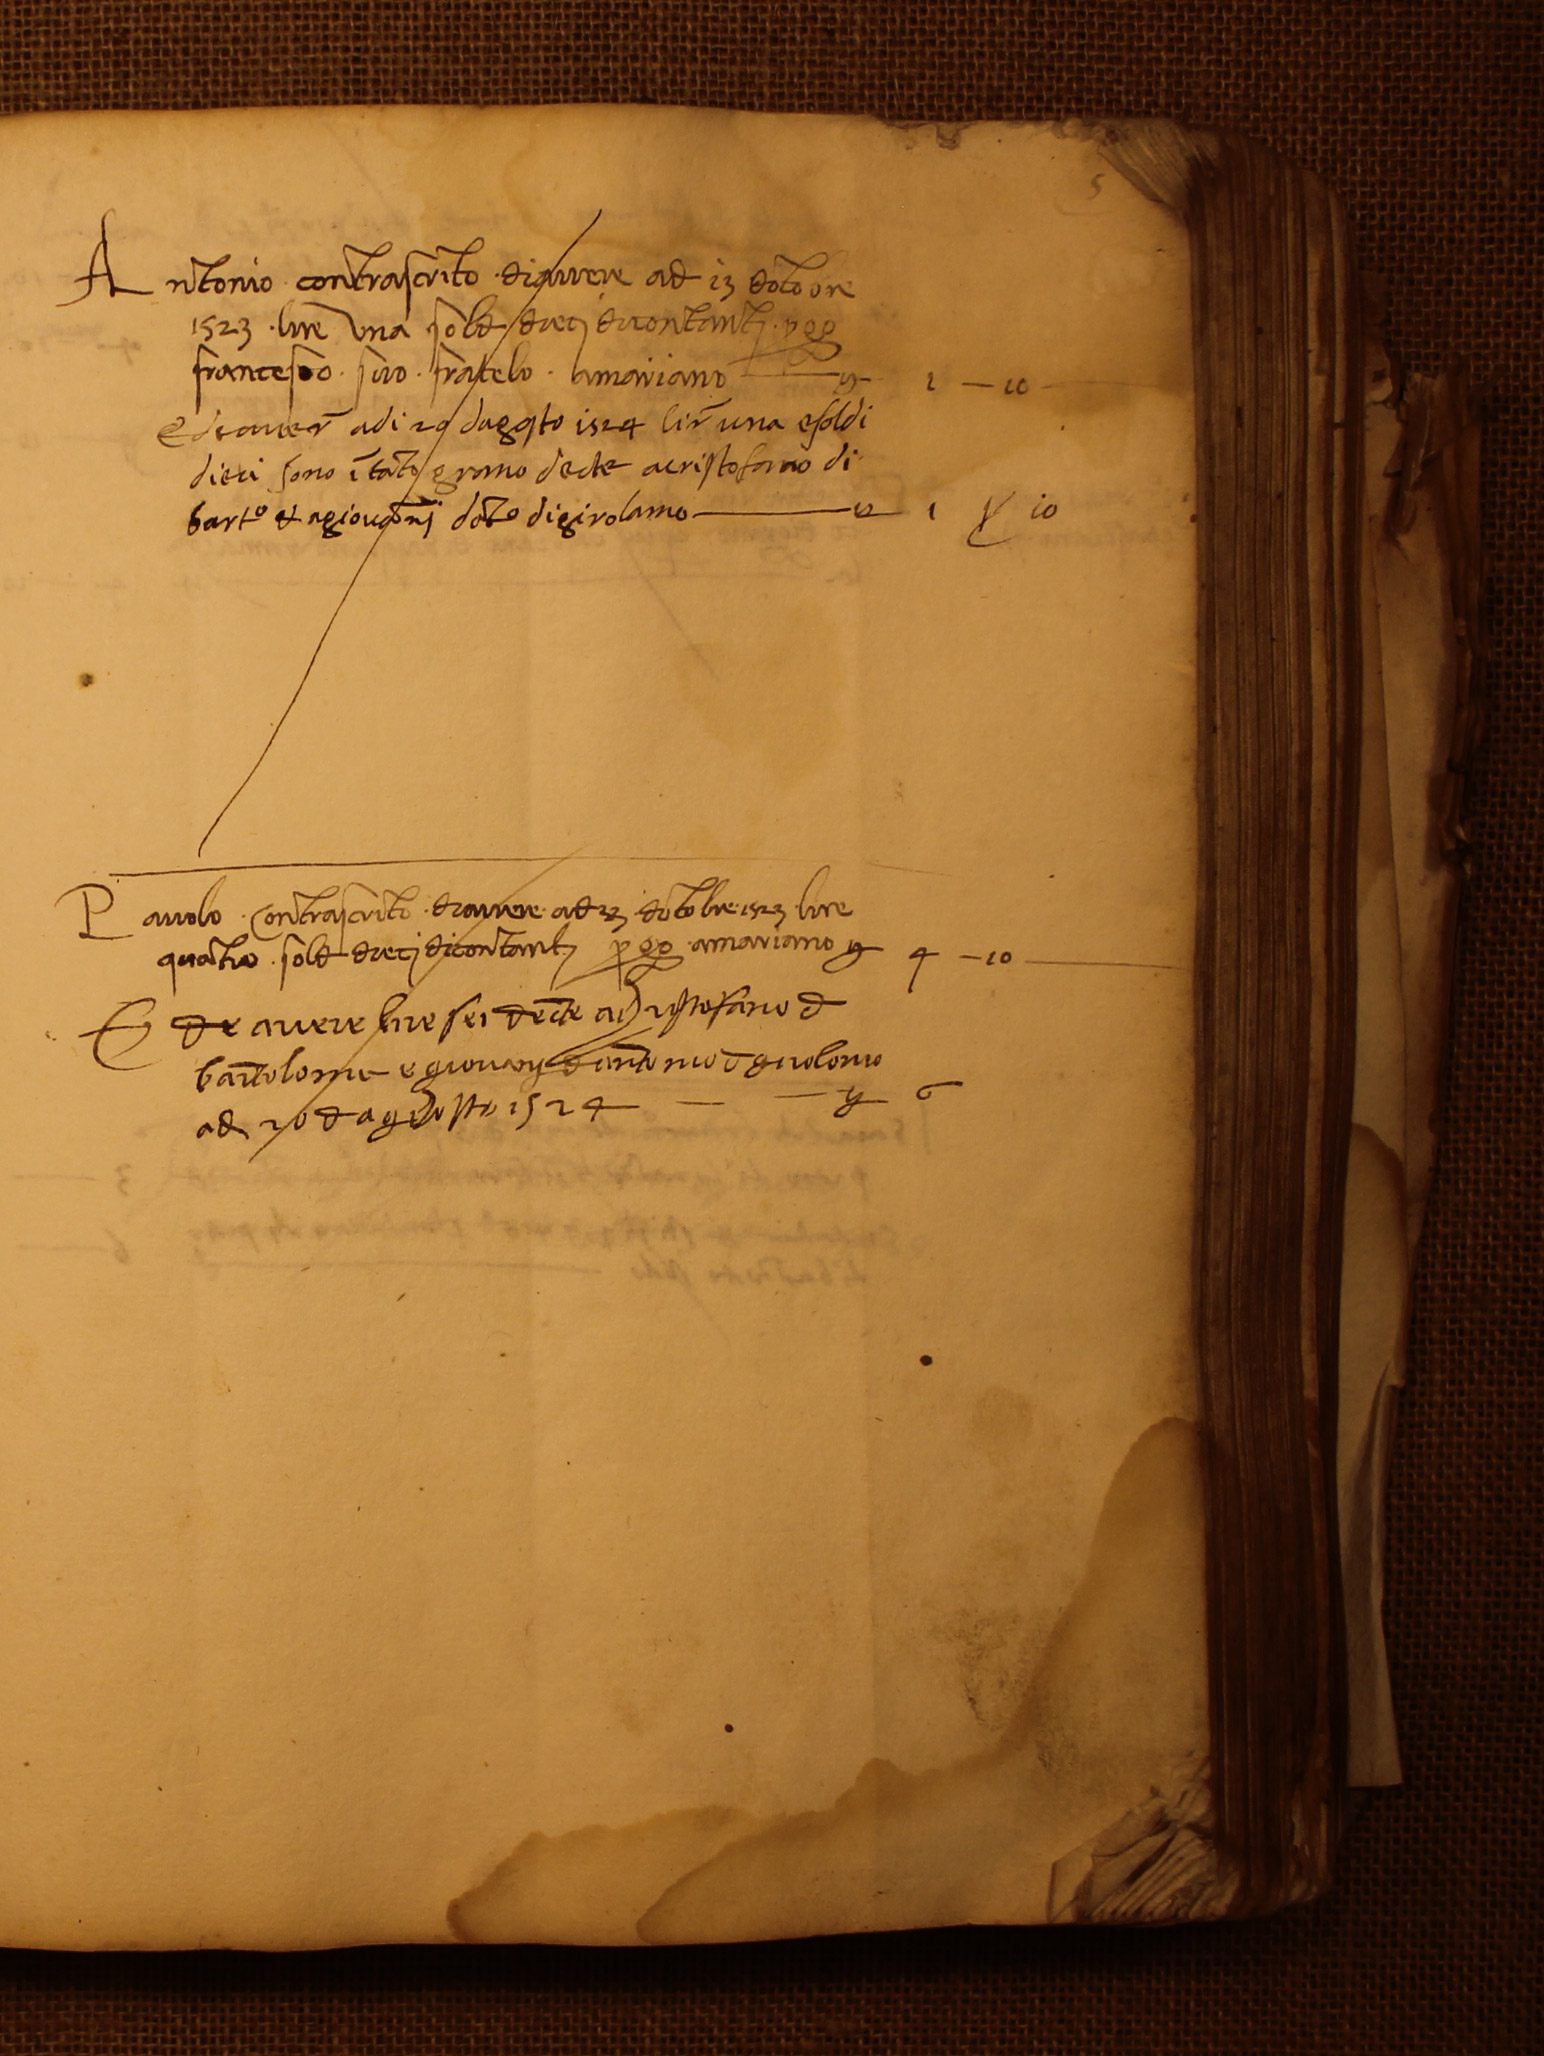 5
Antonio contrascrito di avere ad 13 dotobre
1523 lire una sold dieci di contanti p
francescho suo fratelo a mariano 1 — 10
E de aver adi 29 daggsto 1524 lir una e soldi
dieci sono i tāto grano decte a cristofano di
barto et a giovanni dāto di girolamo 1 10
Pavolo contrascrito di avere ad 23 dotobre 1523 lire
quatro sold dieci di contanti p a mariano 4 — 10
E de avere lire sei decte a cristofano d
bartolome e giovanj dantonio d girolomo
adi 20 d aghosto 1524 — — — 6